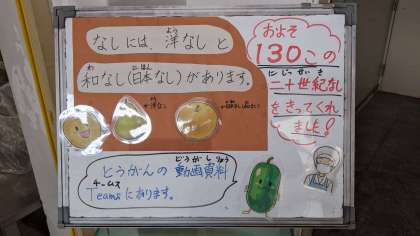 なしには、洋なしと
和なし(日本なし)があります。
およそ
130この
二十世紀なし
をきってくれ
ました!
とうがんの動画資料
Teamsにあります。